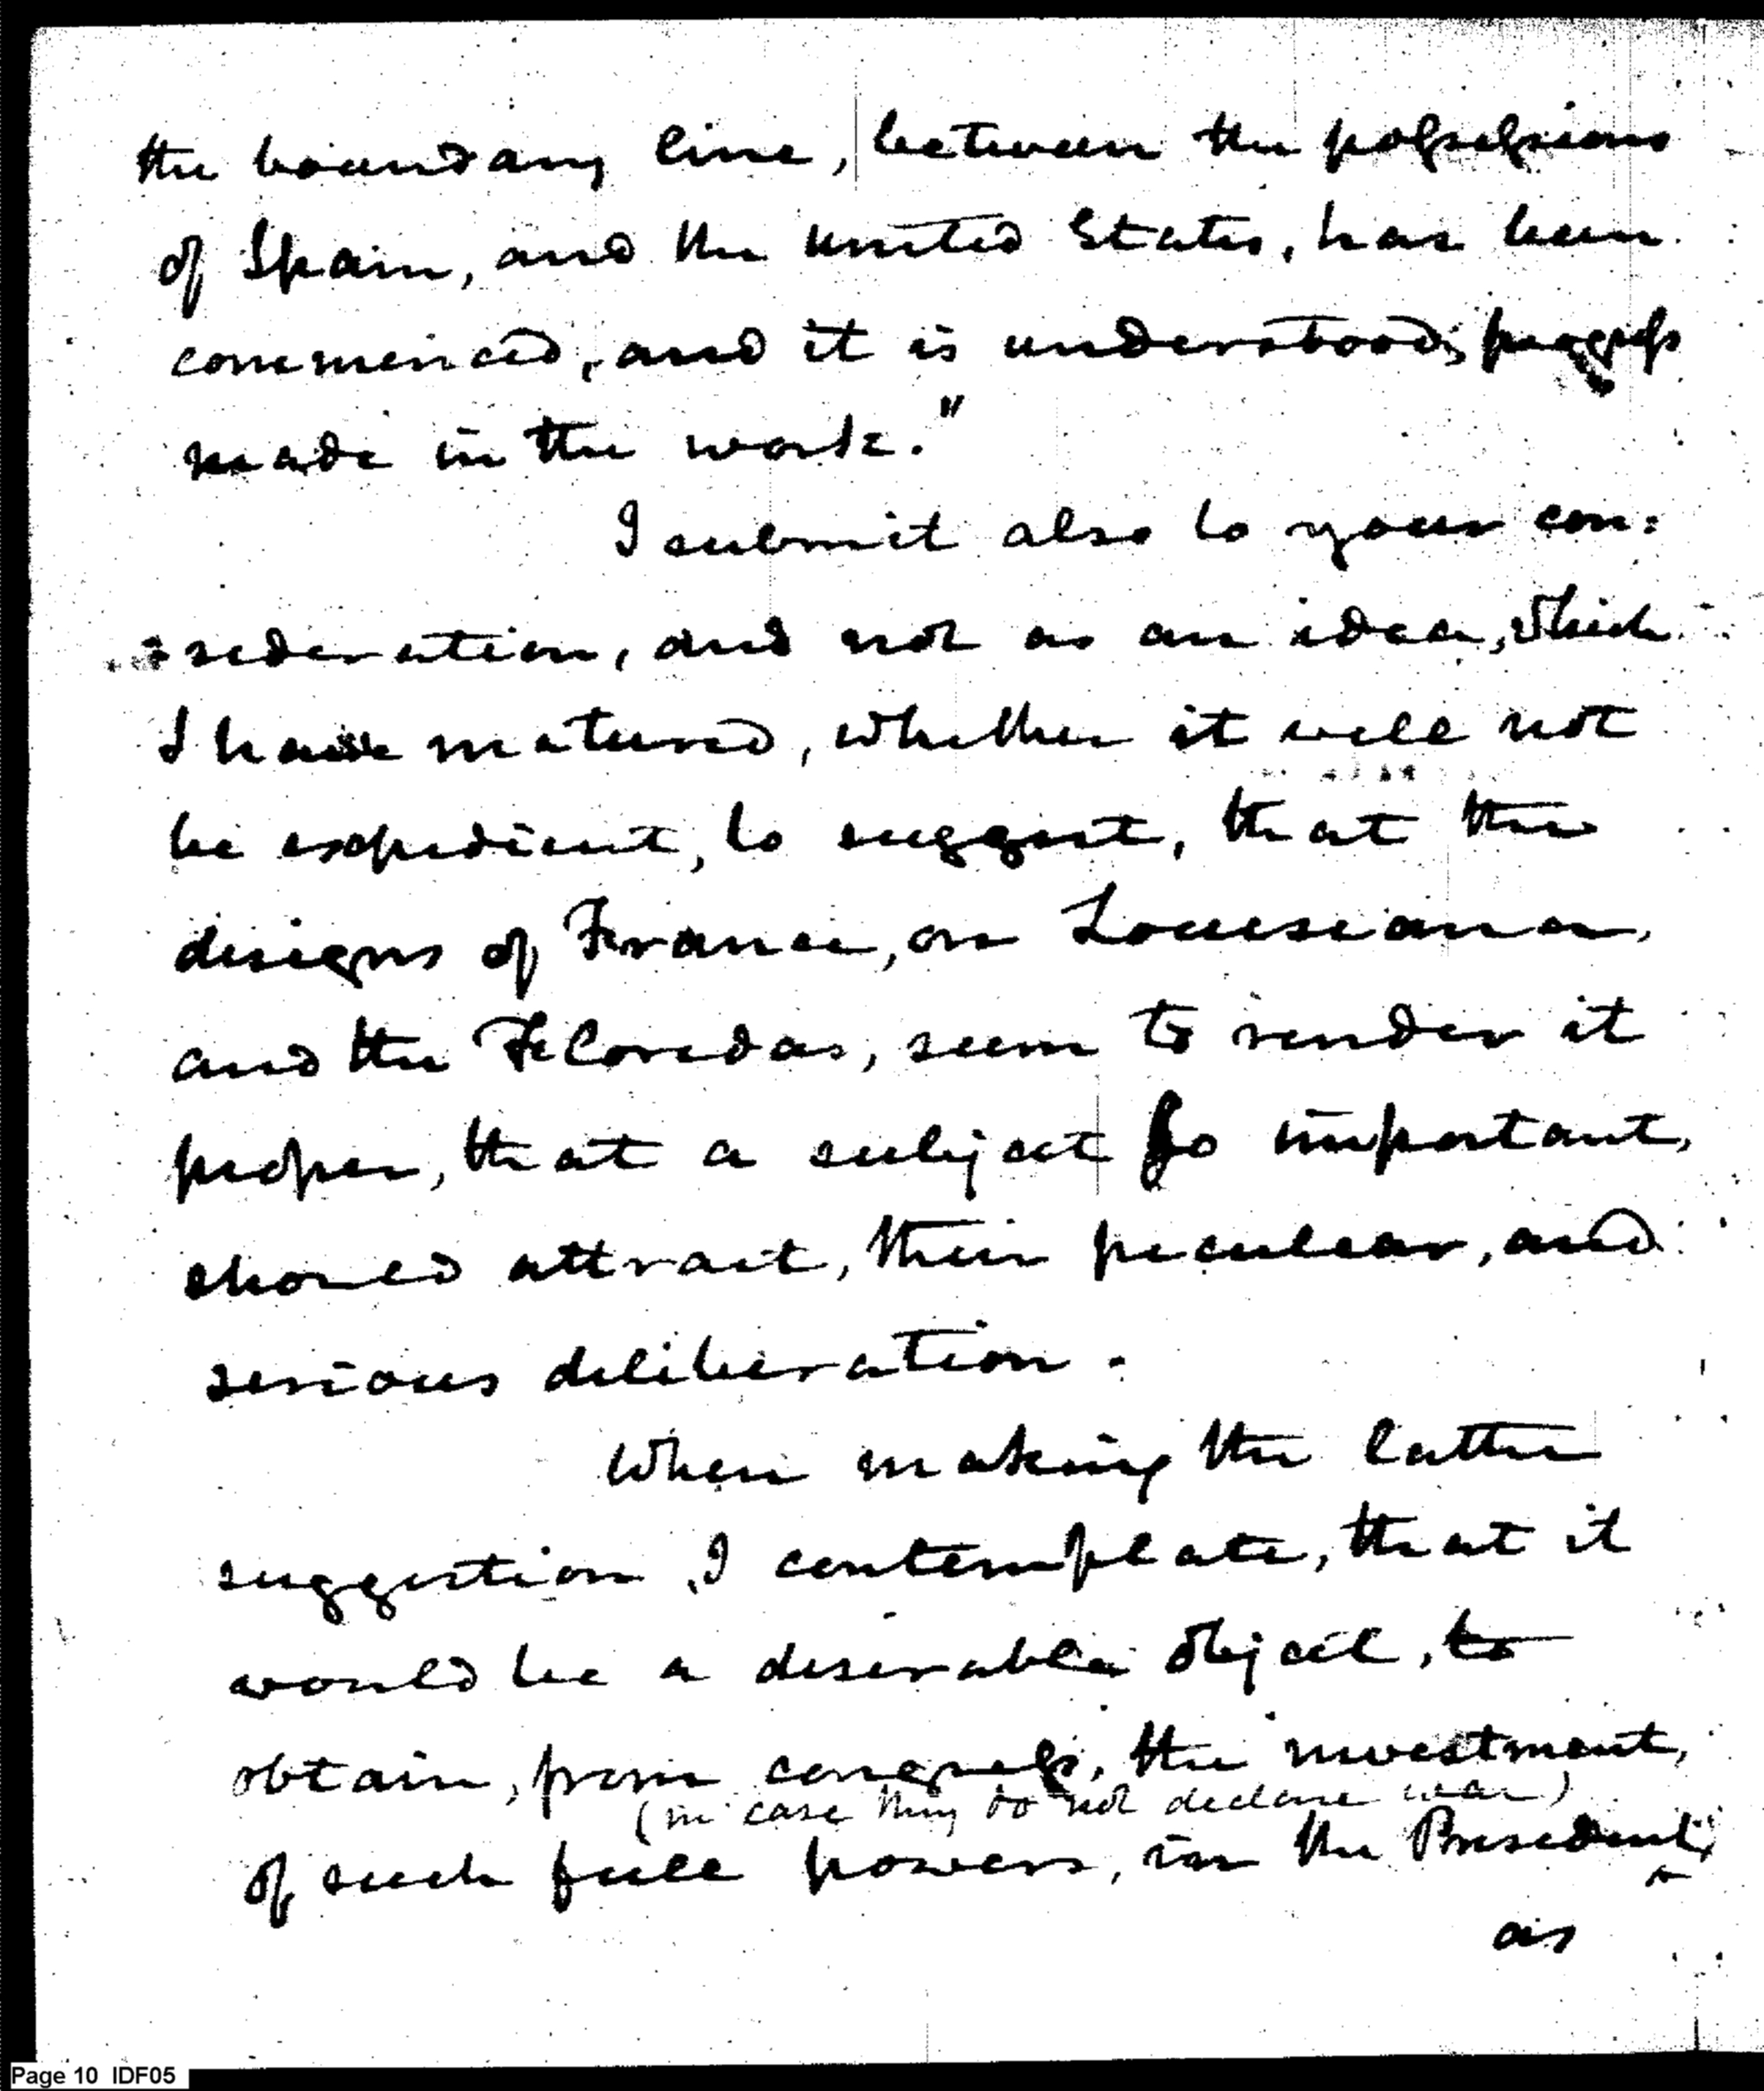 the boundary line, between the possessions
of Spain, and the United States, has been
commenced, and it is understood, progress
made in the work."
I submit also to your con:
:sideration, and not as an idea, which
I have matured, whether it will not
be expedient, to suggest, that the
designs of France, on Louisiana,
and the Floridas, seem to render it
proper, that a subject so important,
should attract, their peculiar, and
serious deliberation.
When making the latter
suggestion, I contemplate, that it
would be a desirable object, to
obtain, from congress, the investment,
(in case they do not declare war)
of such full powers, in the President,
^
as
Page 10 IDF05